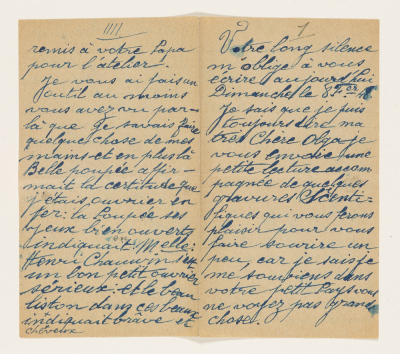 1
Votre long silence
m'oblige à vous
écrire aujourd'hui
Dimanche le 8
Je sais que je puis
toujours dire ma
très Chère Olga je
vous envoie une
petite lecture accom
pagnée de quelques
gravures Scienti-
fiques qui vous ferons
plaisir pour vous
faire sourire un
peu, car je sais je
me souviens dans
votre petit Pays vous
ne voyez pas grands
choses.
IIII
remis à votre Papa
pour l'atelier.
Je vous ai fais un
outil au moins
vous avez vu par-
là que je savais faire
quelque chose de mes
mains et en plus la
Belle poupée affir-
mait la certitude que
j'étais ouvrier en
fer: la Poupée ses
yeux bien ouverts
indiquait Melle:
Henri Chauvin est
un bon petit ouvrier
sérieux: et le beau
liston dans ces beaux
indiquait brave et
cheveux